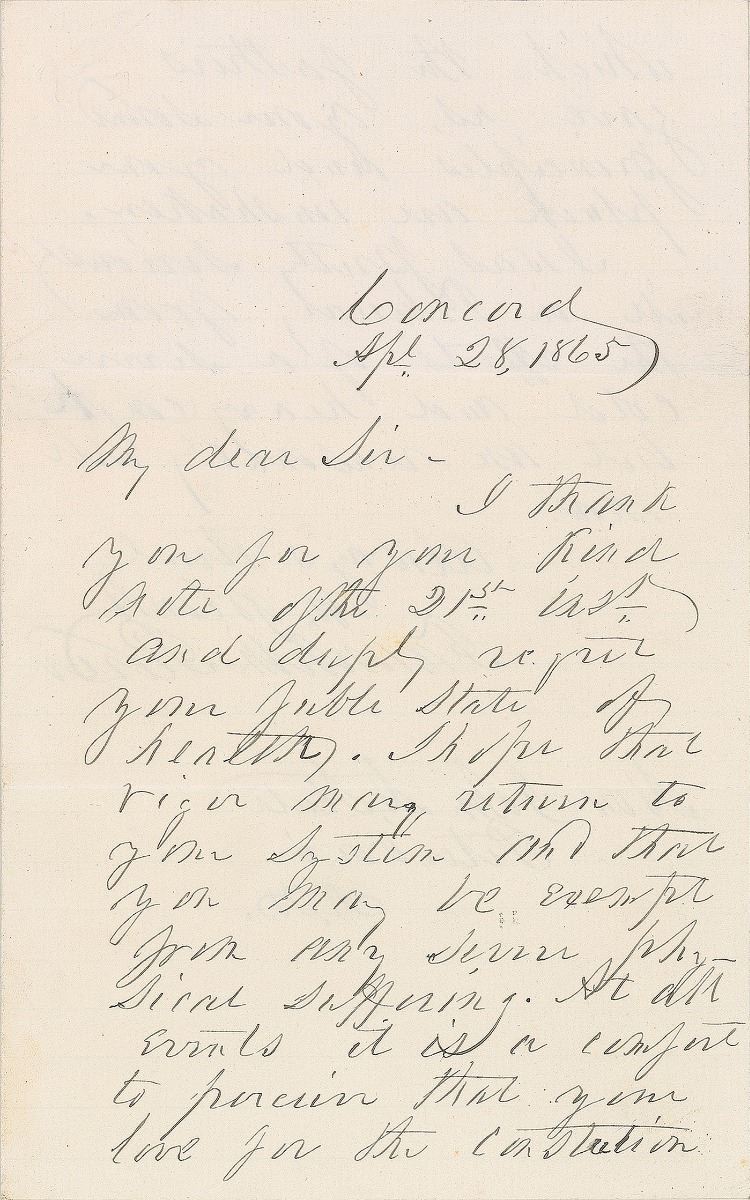 Concord
Apl. 28, 1865
My dear Sir -
I thank
you for your kind
note of the 21st inst
and deeply regret
your feeble state of
health. I hope that
vigor may return to
your system and that
you may be exempt
from any severe phy-
sical suffering. At all
events it is a comfort
to perceive that your
love for the Constitution